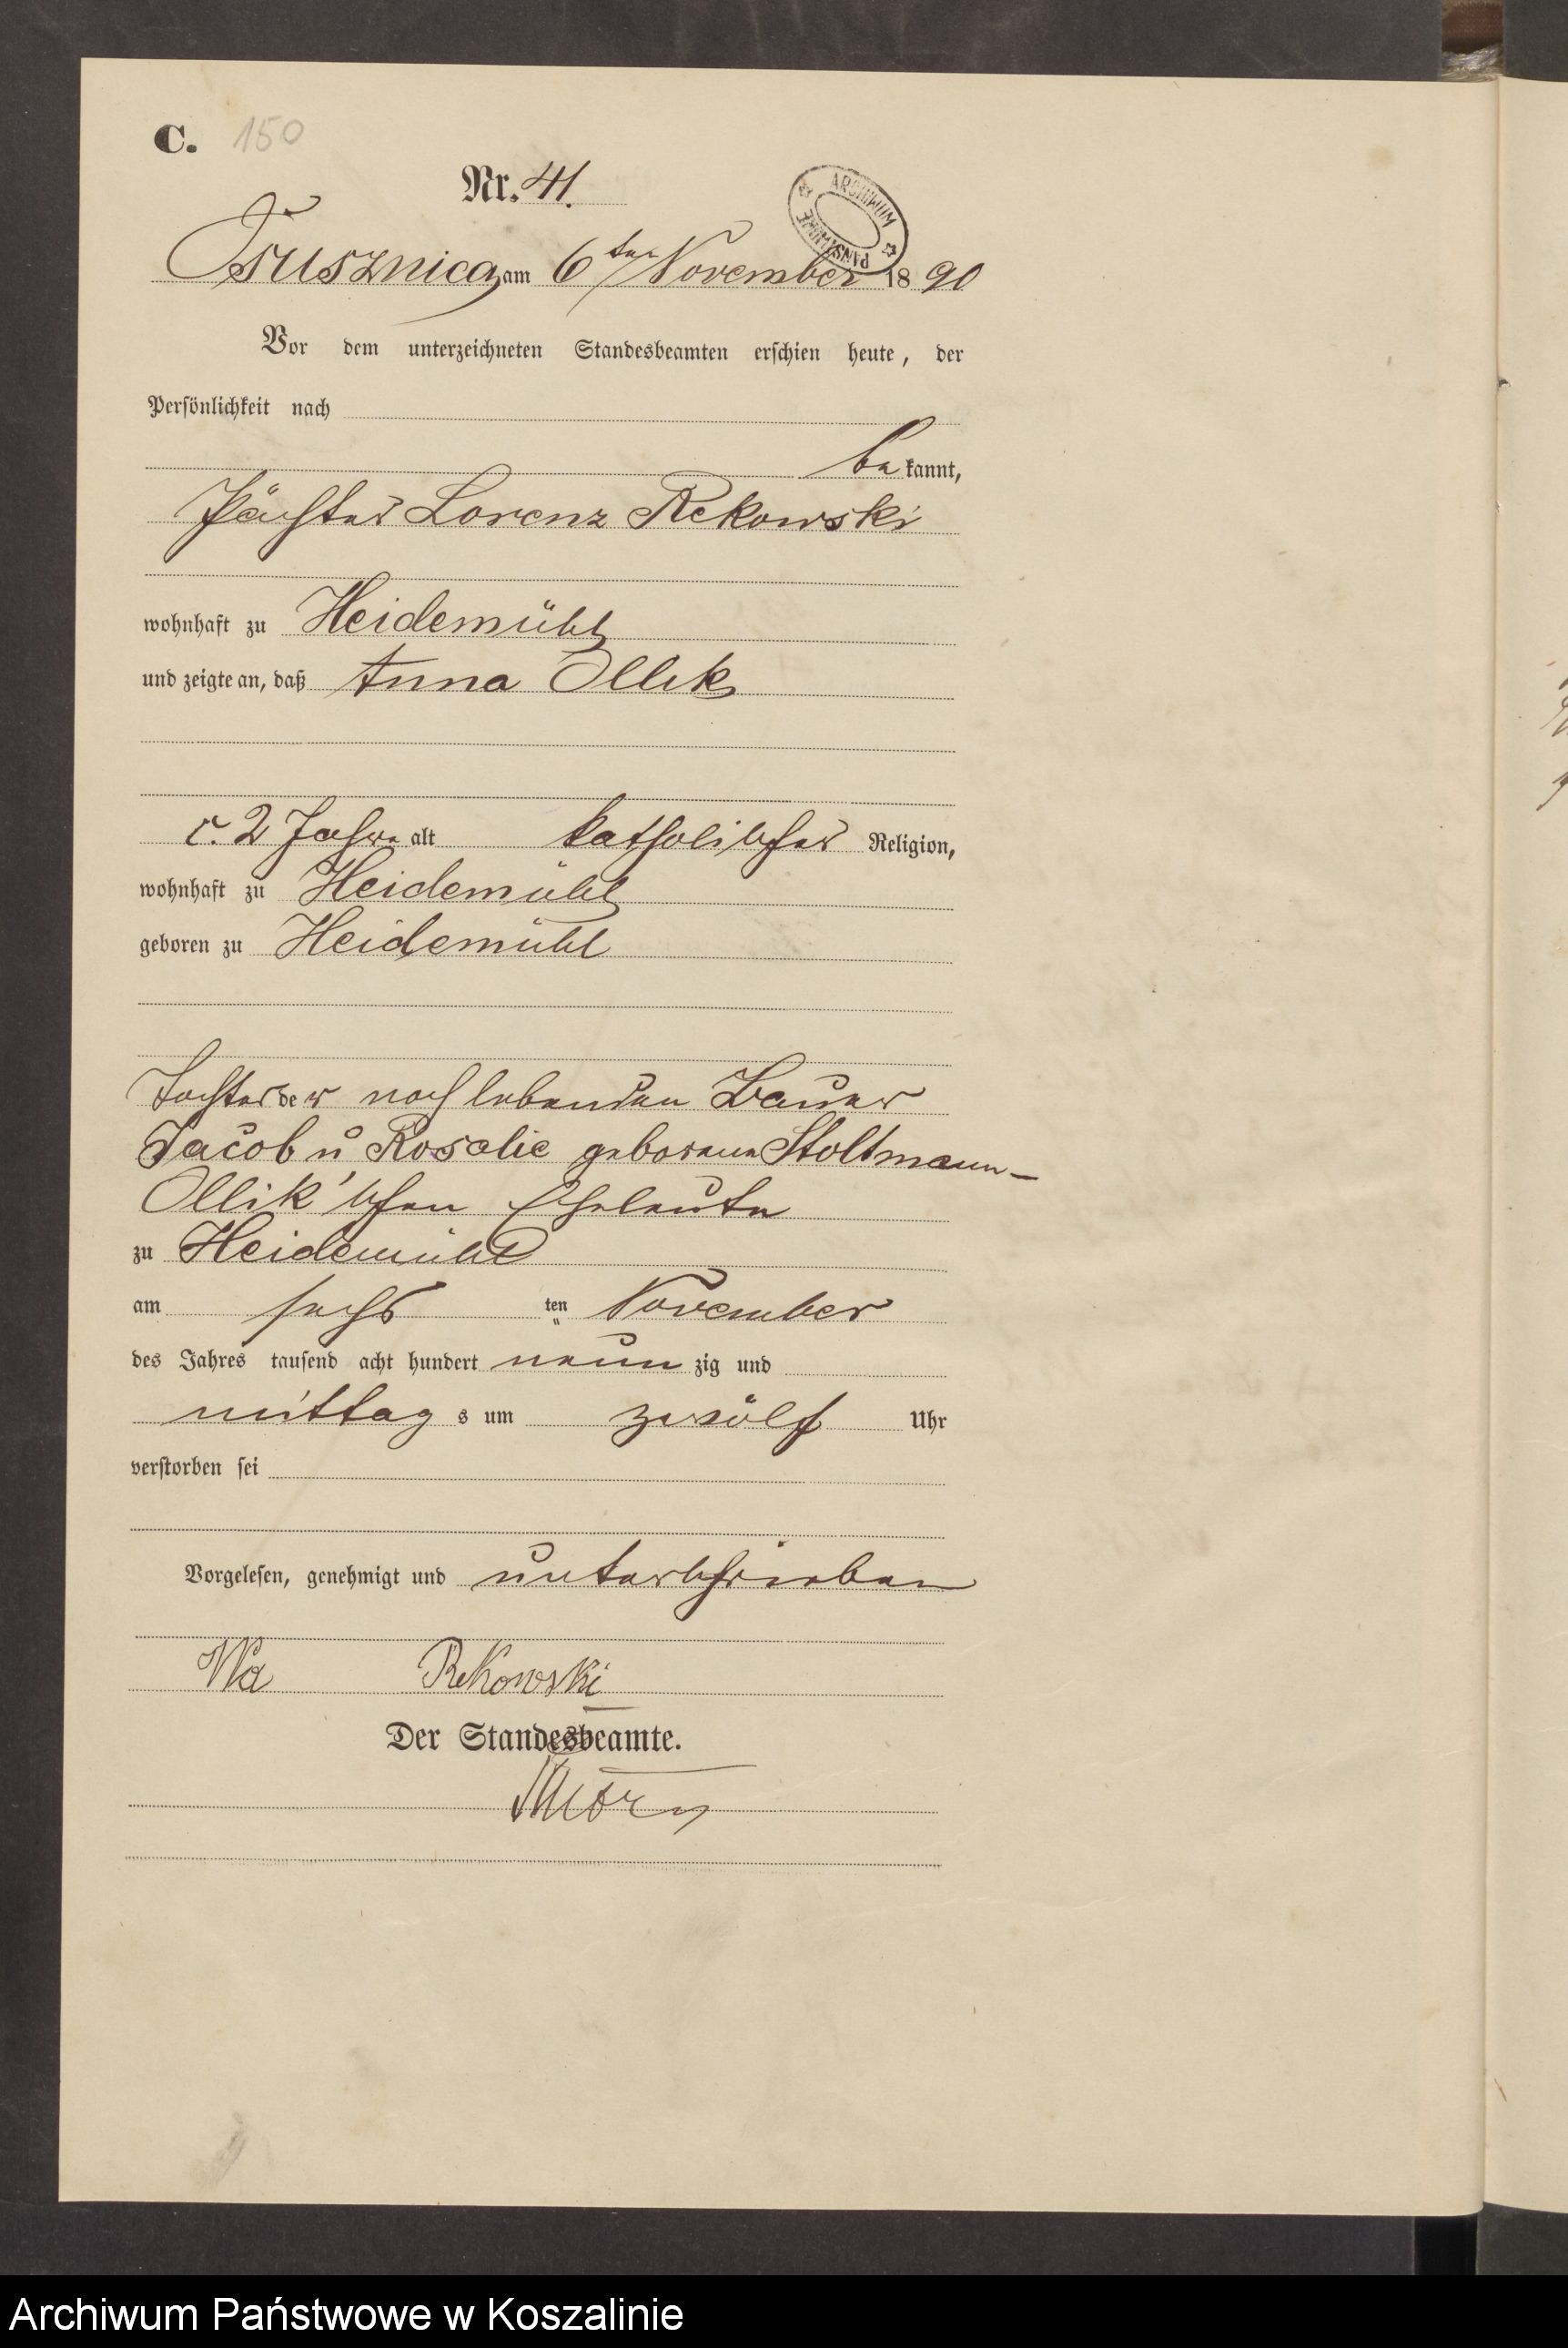 C. 150
Nr. 41.
ARCHIWUM PAŃSTWOWE
am 6ten November 1890
Vor dem unterzeichneten Standesbeamten erschien heute, der
Persönlichkeit nach
bekannt,
Pächter Lorenz Rekowski
wohnhaft zu Heidemühl
und zeigte an, daß Anna Ollik
c. 2 Jahre alt katholischer Religion,
wohnhaft zu Heidemühl
geboren zu Heidemühl
Tochter der noch lebenden Bauer
Jacob u Rosalie geborene Stoltmann-
Ollik'schen Eheleute
zu Heidemühl
am sechs ten November
des Jahres tausend acht hundert neunzig und
mittags um zwölf Uhr
verstorben sei
Vorgelesen, genehmigt und unterschrieben
Rekowski
Der Standesbeamte.
Archiwum Państwowe w Koszalinie